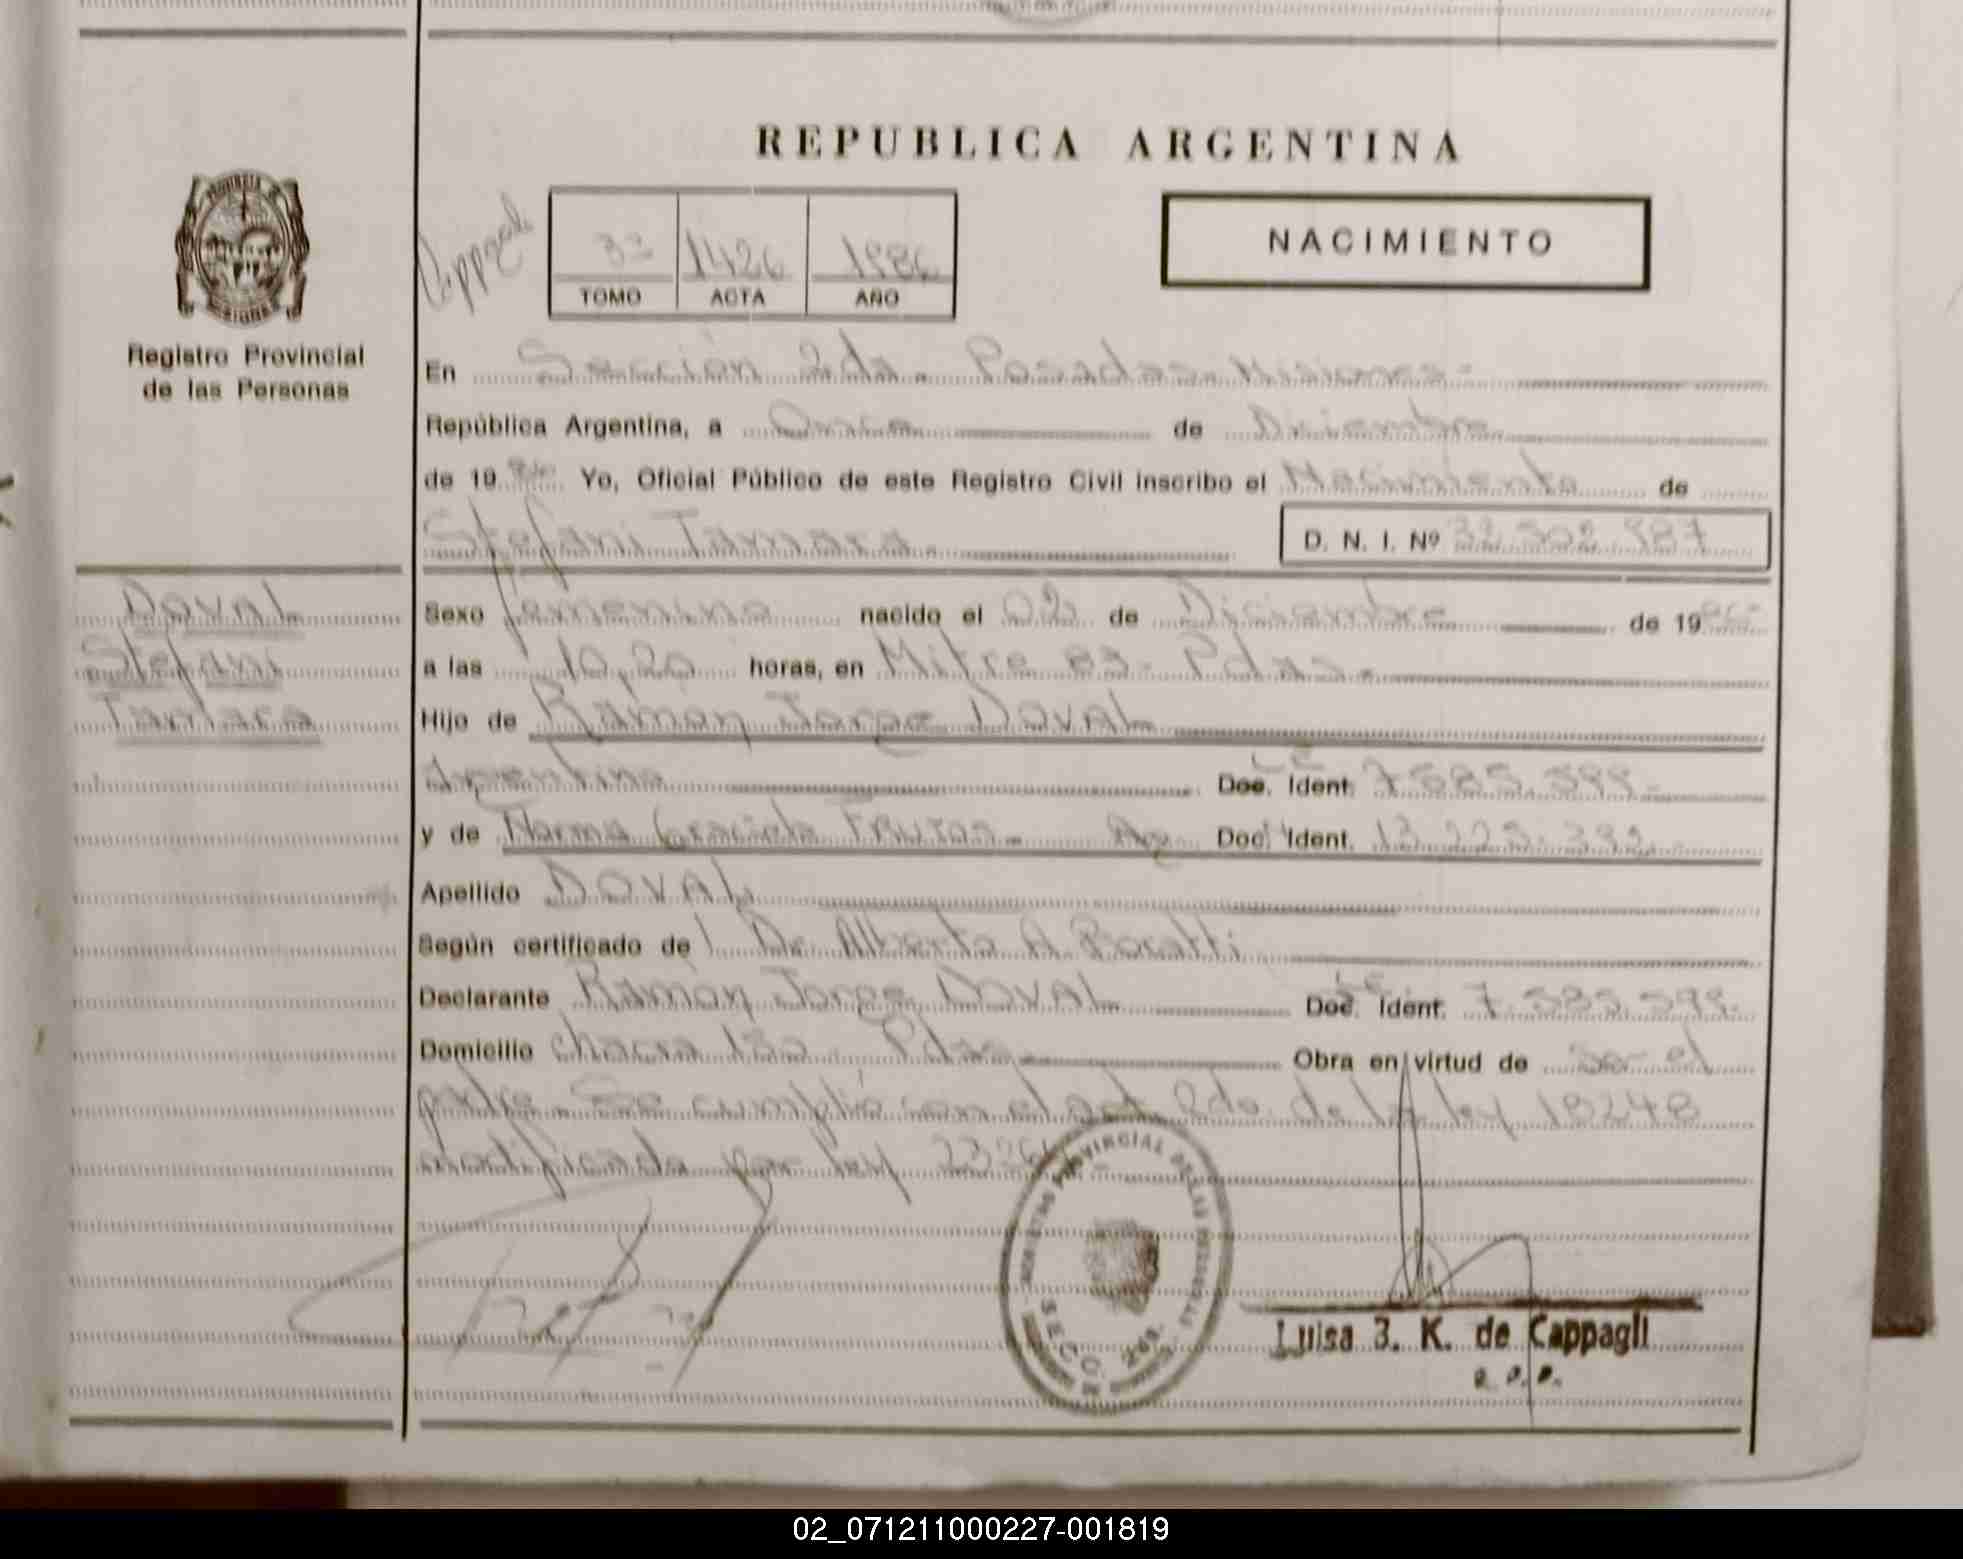 REPUBLICA ARGENTINA
3º 1426 1986
TOMO ACTA AÑO
NACIMIENTO
Registro Provincial
de las Personas
En Sección 2da. Posadas. Misiones-
República Argentina, a Once de Diciembre
de 19 86 Yo, Oficial Público de este Registro Civil inscribo el Nacimiento de
Stefani Tamara. D. N. I. Nº 32.502.987
Doval
Stefani
Tamara
Sexo femenino nacido el 02 de Diciembre de 1986-
a las 10,20 horas, en Mitre 83- Pdas.
Hijo de Ramón Jorge DOVAL
Argentino Doc. Ident. 7.585.599-
y de Norma Graciela FRUTOS- Arg Doc. Ident. 13.225.392.-
Apellido DOVAL
Según certificado de Dr. Alberto A.
Declarante Ramón Jorge DOVAL Doc. Ident. 7.585.599-
Domicilio chacra 130 Pdas. Obra en virtud de ser el
padre. Se cumplió con el art. 2do. de la ley 18248
modificada por ley
REGISTRO PROVINCIAL DE LAS PERSONAS
SECC. 2da.
Luisa 3. K. de Cappagli
02_071211000227-001819